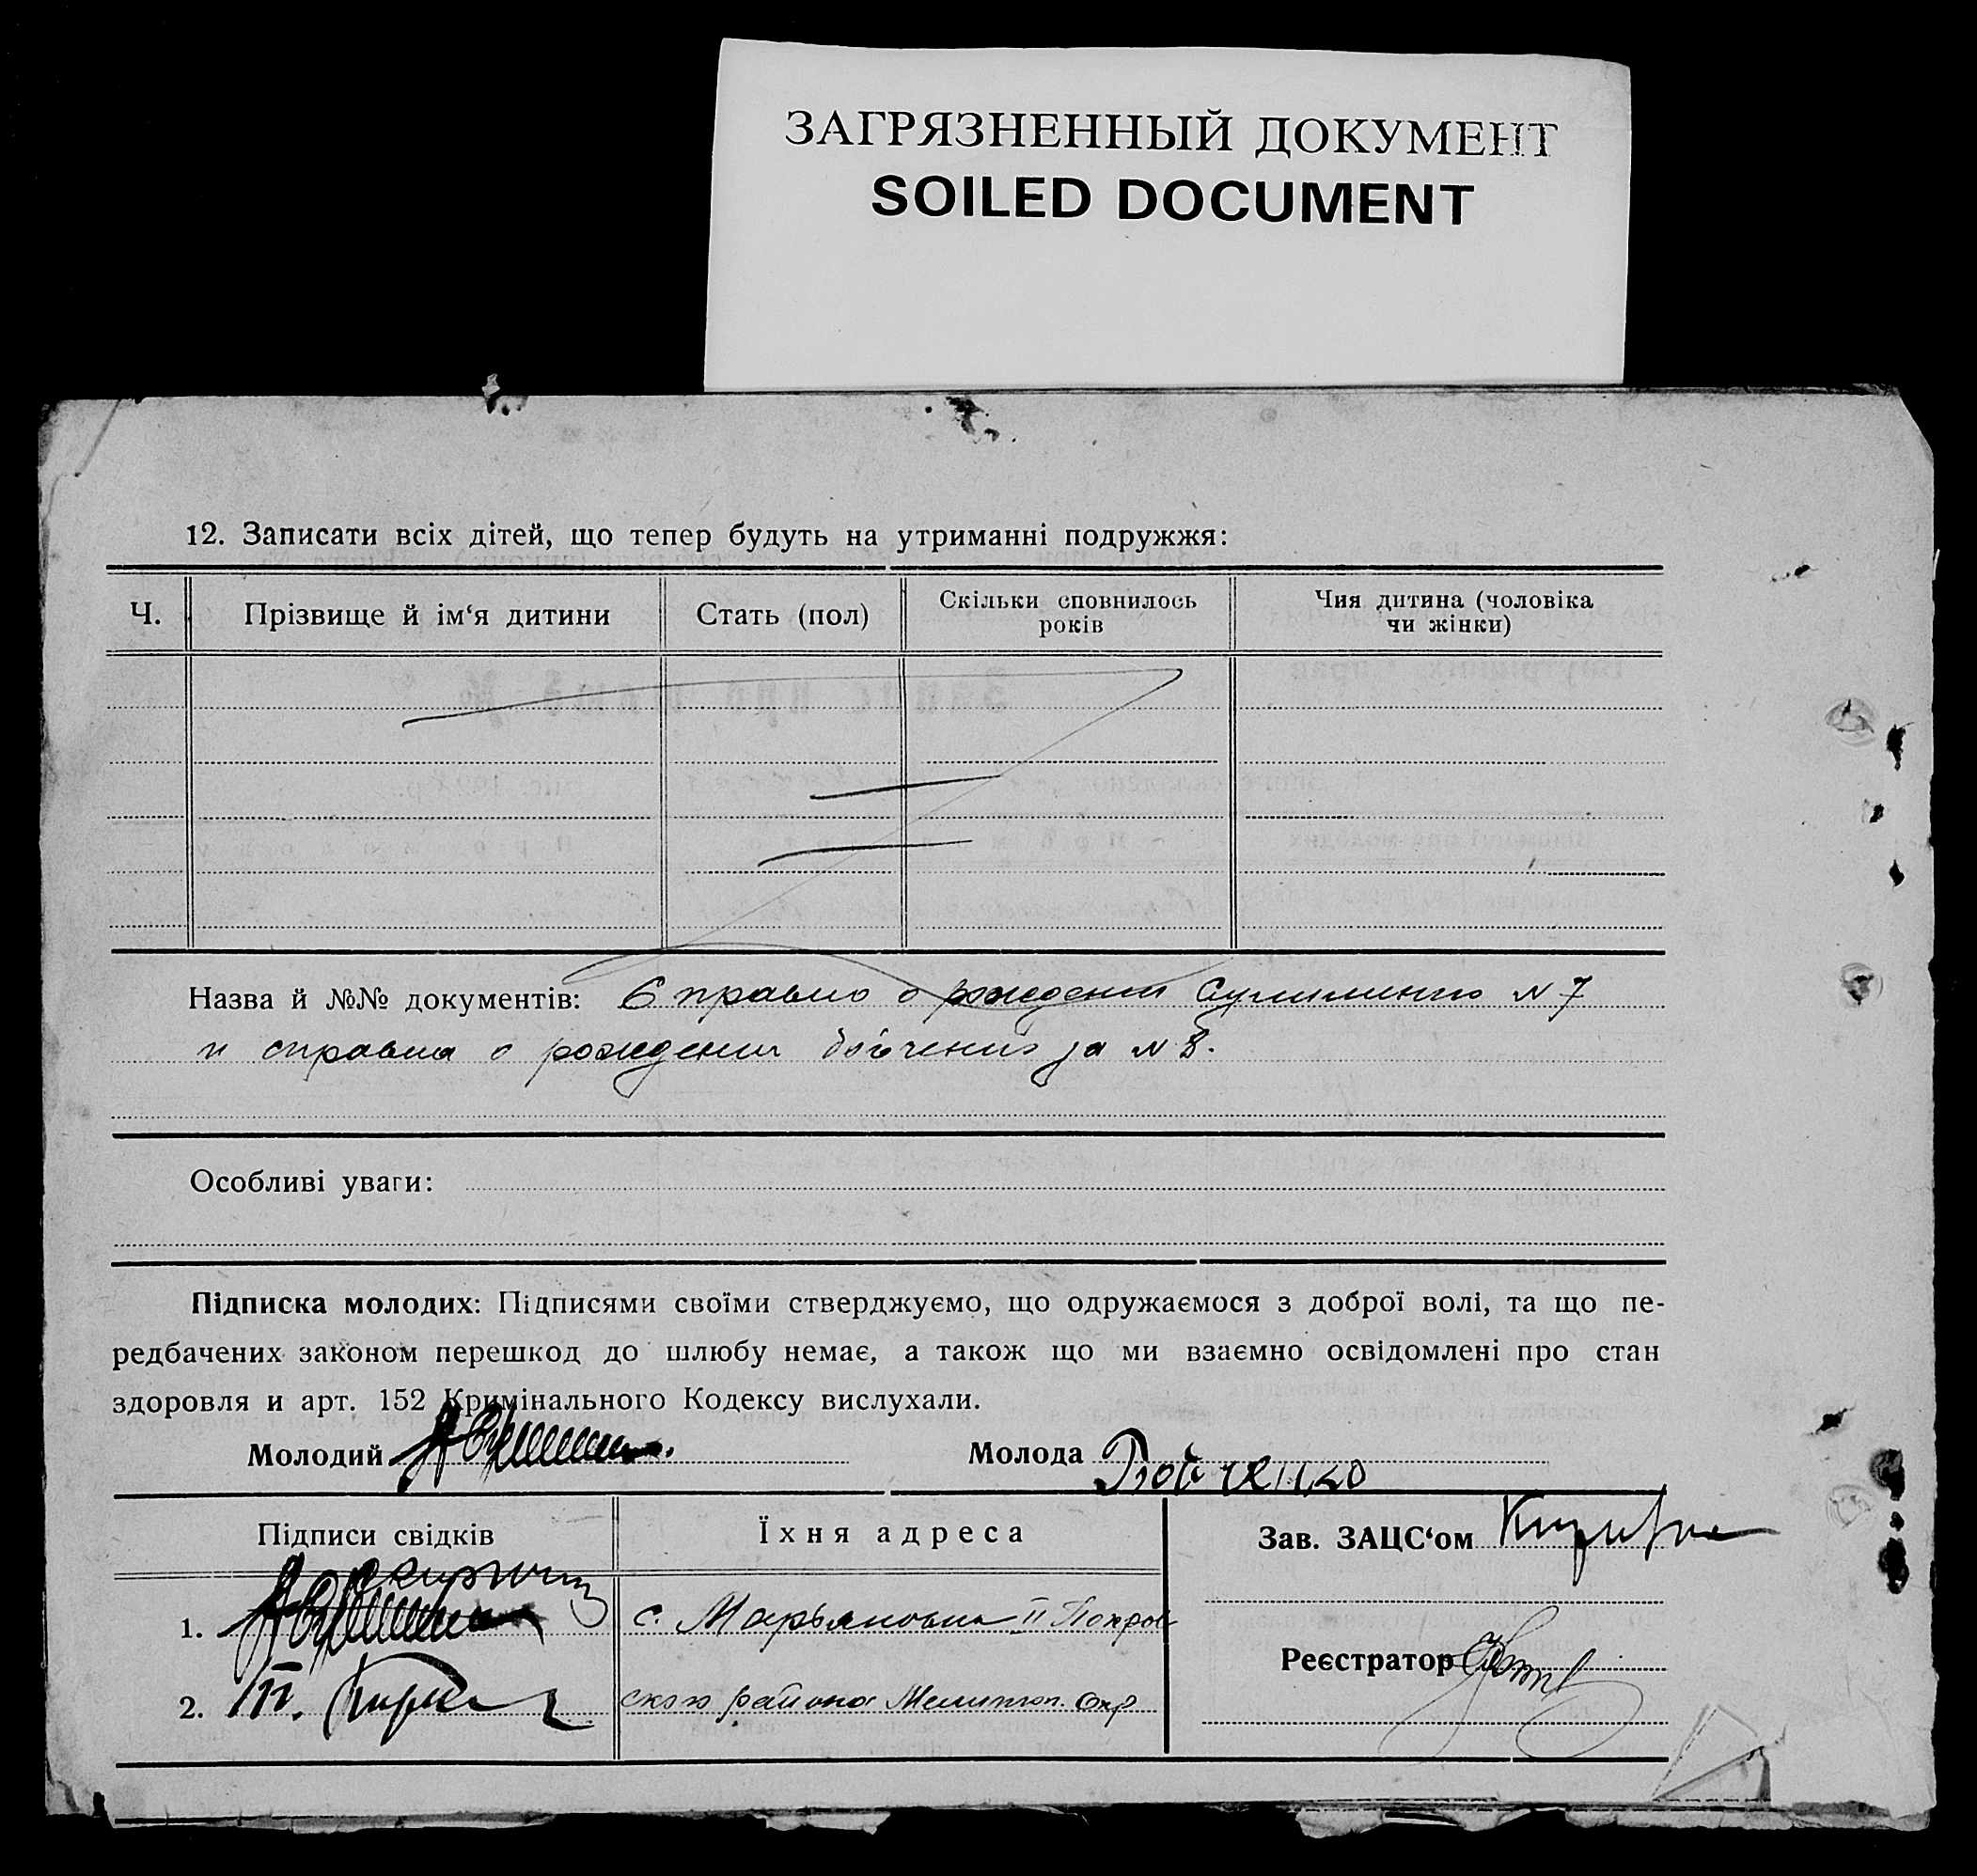 ЗАГРЯЗНЕННЫЙ ДОКУМЕНТ
SOILED DOCUMENT
12. Записати всіх дітей, що тепер будуть на утриманні подружжя:
Ч.
Прізвище й ім‘я дитини
Стать (пол)
Скільки сповнилось
років
Чия дитина (чоловіка
чи жінки)
Назва й №№ документів: Справка о рождении N 7
и справка о рождении за N 8.
Особливі уваги:
Підписка молодих: Підписями своїми стверджуємо, що одружаємося з доброї волі, та що пе-
редбачених законом перешкод до шлюбу немає, а також що ми взаємно освідомлені про стан
здоровля и арт. 152 Кримінального Кодексу вислухали.
Молодий
Молода
Підписи свідків
Їхня адреса
Зав. ЗАЦС‘ом
1.
с. Марьяновка II Покров
Реєстратор
2.
ского района Мелитоп. Окр